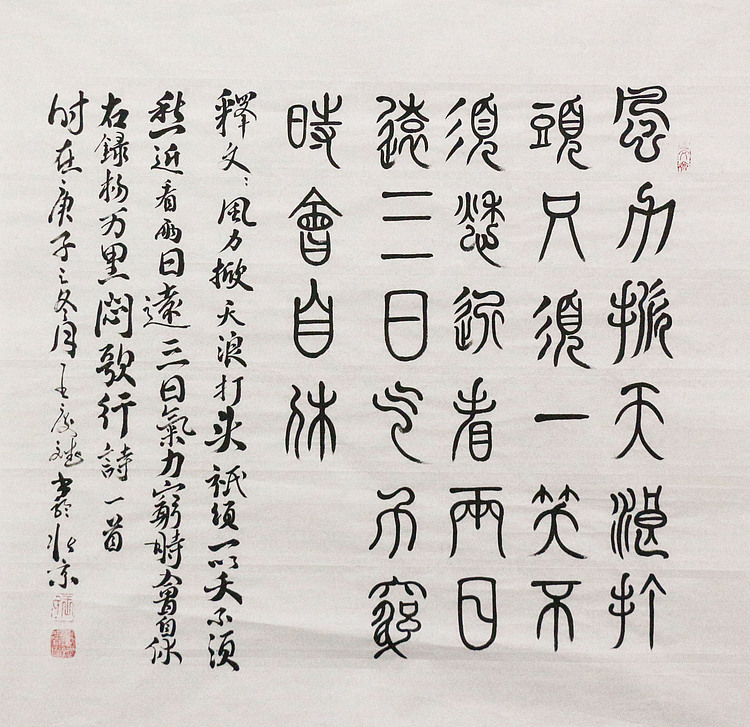 風力掀天浪打
頭只須一笑不
須愁近看兩日
遠三日气力窮
時會自休
釋文：風力掀天浪打头祇須一笑不須
愁近看兩日遠三日氣力窮時會自休
右録楊万里悶歌行詩一首
时在庚子之冬月王